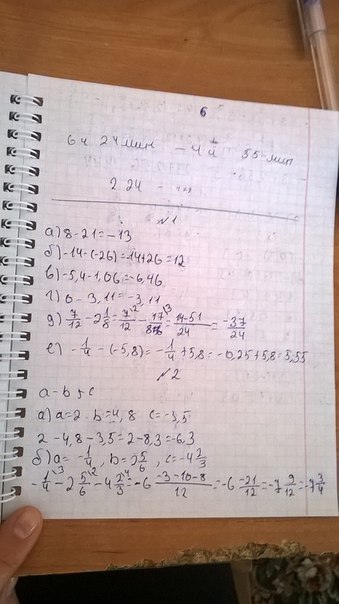 6
6ч 24мин - 4ч 55 мин
2 24 -
№1
а) 8-21=-13
б) -14-(-26)=-14+26=12
в) -5,4-1,06=-6,46
г) 0-3,11=-3,11
д) 7/12 - 2 1/8 = 7/12 - 17/8 = (14-51)/24 = -37/24
е) -1/4 - (-5,8) = -1/4 + 5,8 = -0,25+5,8=5,55
№2
a-b+c
а) a=2 b=4,8 c=-3,5
2-4,8-3,5=2-8,3=-6,3
б) a=-1/4, b=2 5/6, c=-4 2/3
-1/4 - 2 5/6 - 4 2/3 = -6 (-3-10-8)/12 = -6 -21/12 = -7 9/12 = -7 3/4